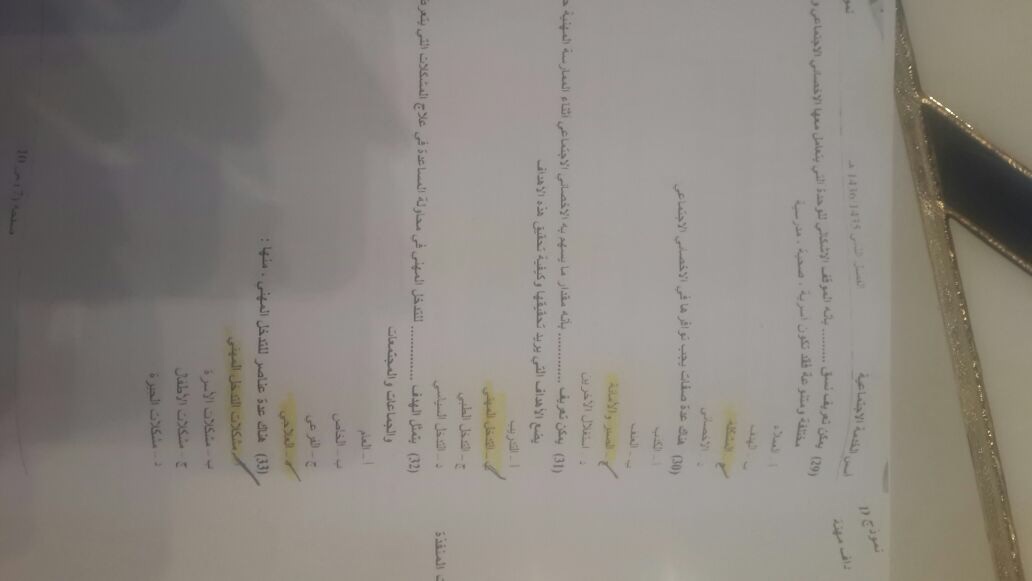 أسس الخدمة الاجتماعية
الفصل الثاني 1435 1436 هـ
نموذج (
(29) يمكن تعريف نسق .......... بأنه الموقف الاشكالي للوحدة التي يتعامل معها الاخصائي الاجتماعي و
مختلفة ومتنوعة فقد تكون اسرية ، صحية ، مدرسية
أ – العملاء
ب – الهدف
ج – المشكلة
د – الاخصائي
(30) هناك عدة صفات يجب توافرها في الاخصائي الاجتماعي
أ – الكذب
ب – العنف
ج – الصبر والأمانة
د – استغلال الاخرين
(31) يمكن تعريف .......... بأنه مقدار ما يسهم به الاخصائي الاجتماعي اثناء الممارسة المهنية
يضع الأهداف التي يريد تحقيقها وكيفية تحقيق هذه الاهداف
أ – التدريب
ب – التدخل المهني
ج – التدخل الطبي
د – التدخل السياسي
(32) يتمثل الهدف .......... للتدخل المهني في محاولة المساعدة في علاج المشكلات التي يتعرض
والجماعات والمجتمعات
أ – العام
ب – الخاص
ج – الفرعي
د – العلاجي
(33) هناك عدة عناصر للتدخل المهني ، منها :
أ – مشكلات التدخل المهني
ب – مشكلات الأسرة
ج – مشكلات الأطفال
د – مشكلات الجيرة
صفحة 7 من 10
داف مهنة
ت المنفذة